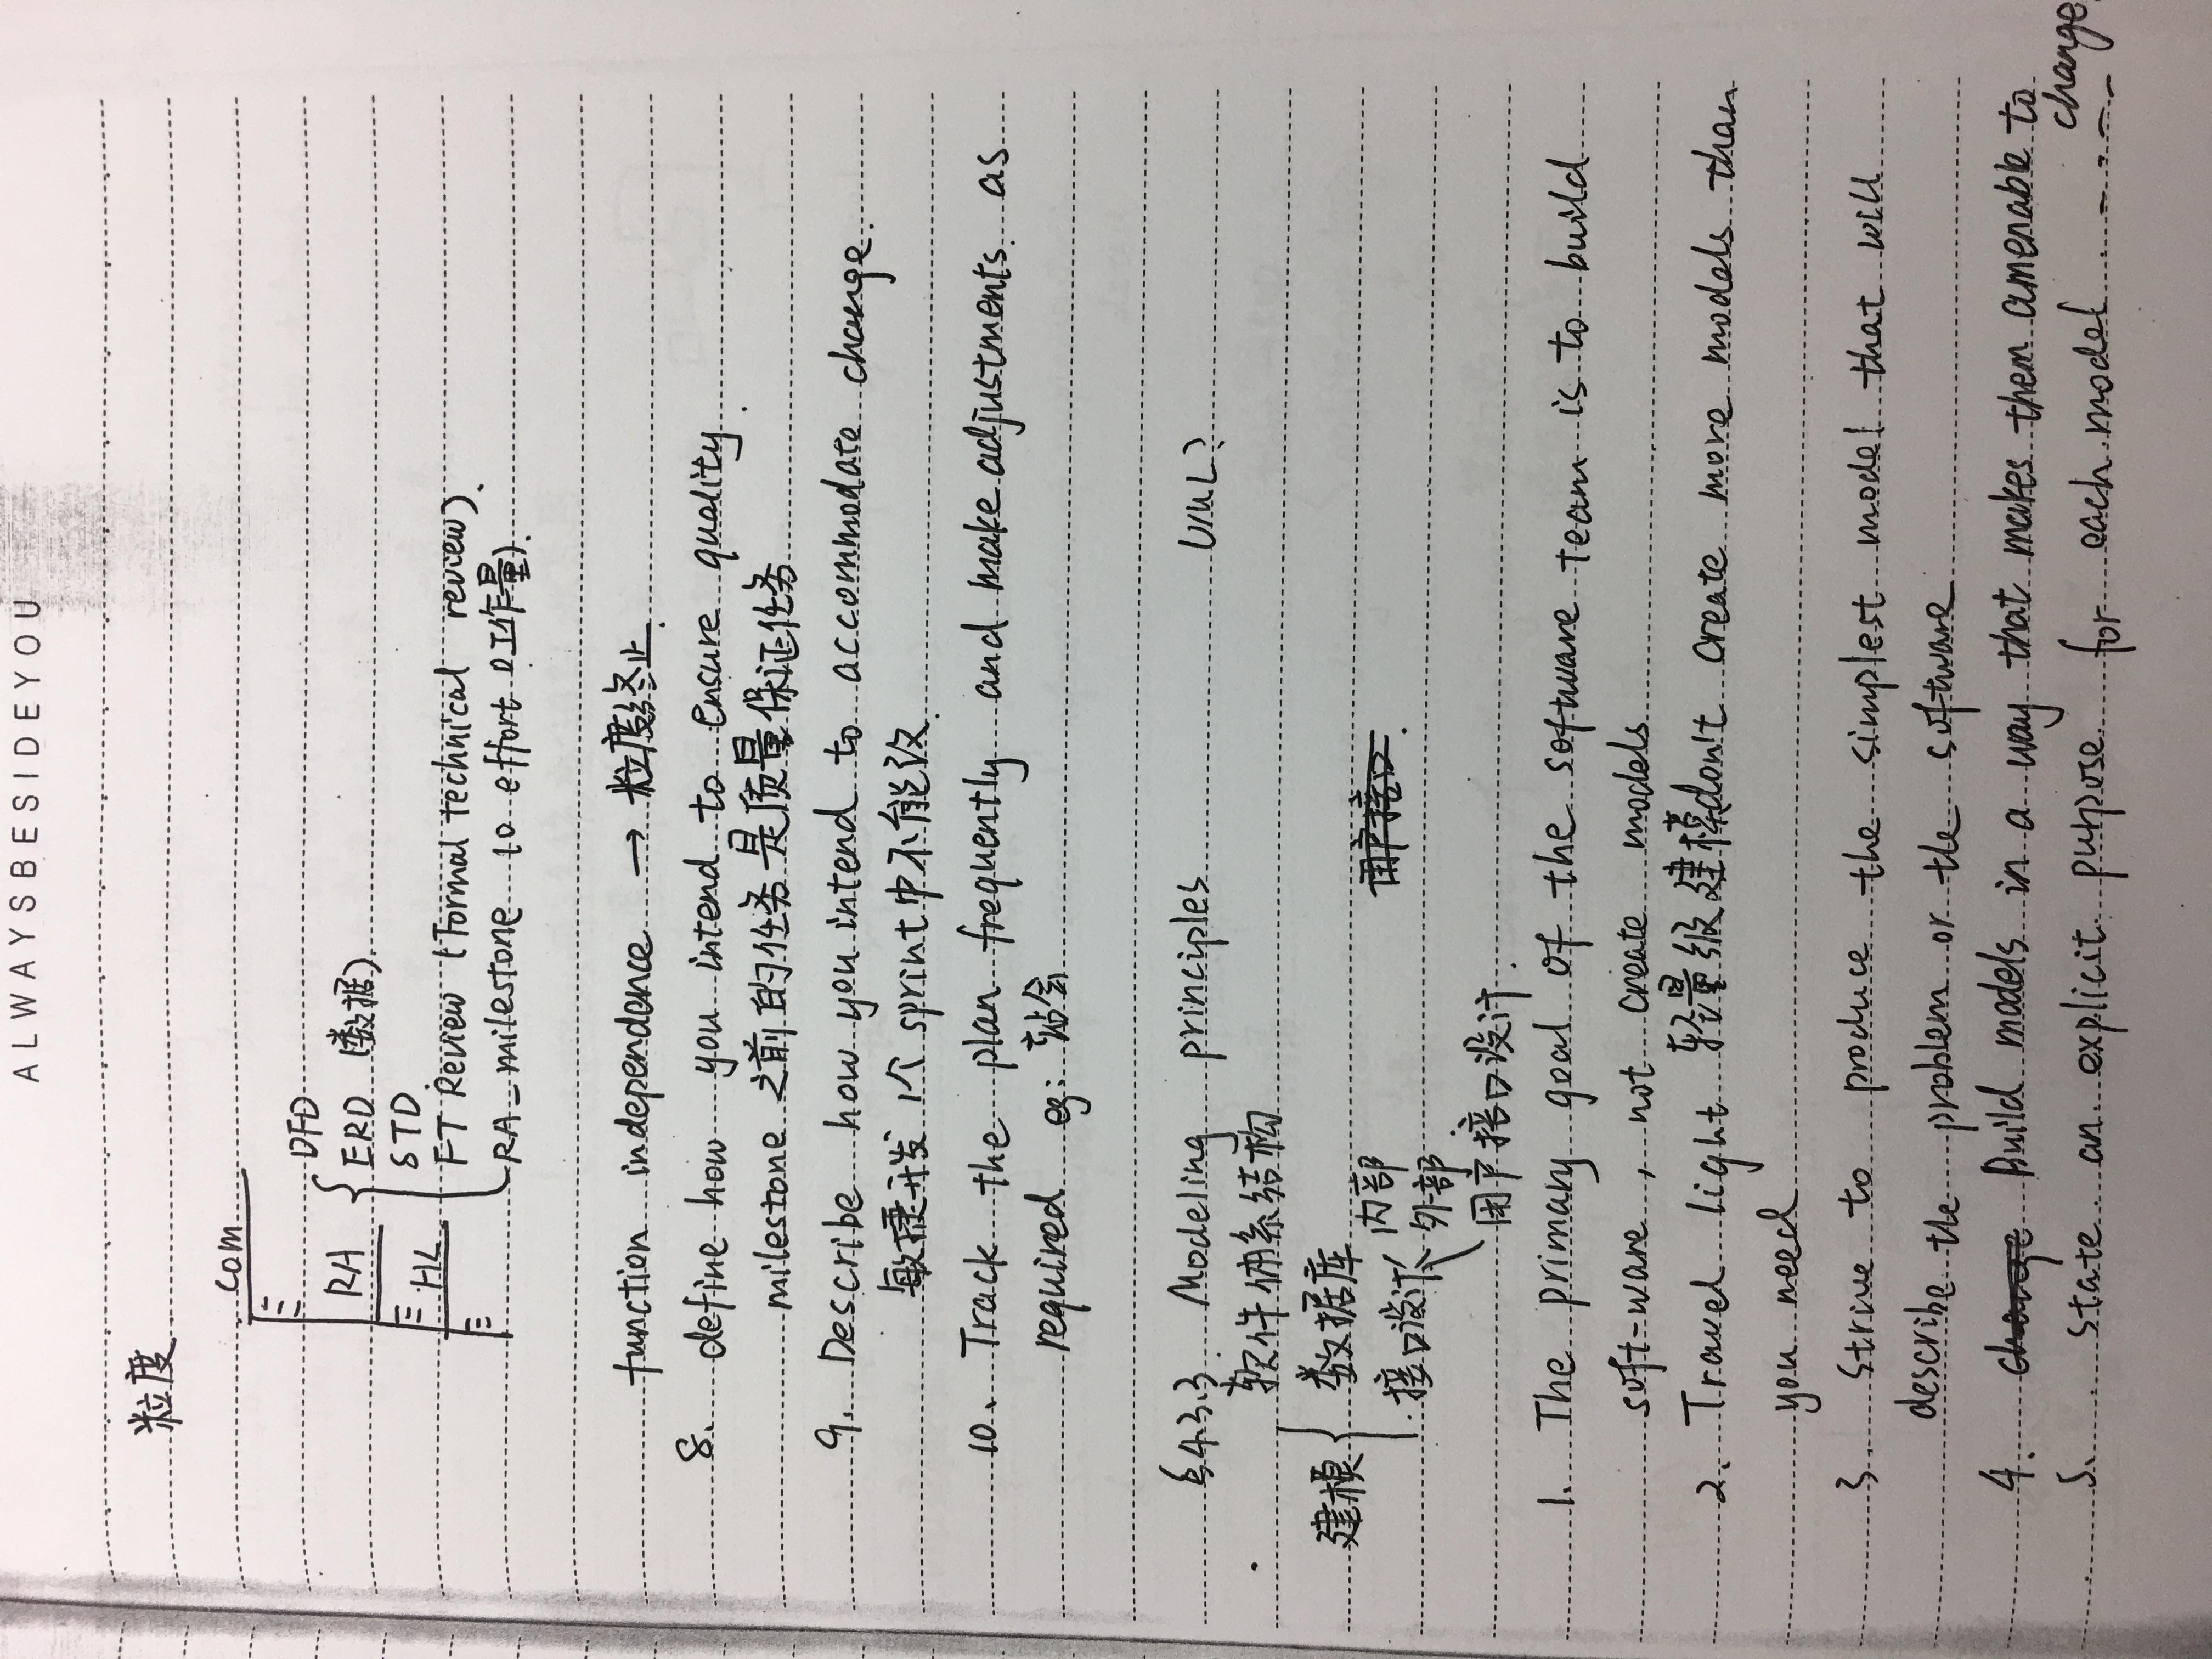 ALWAYSBESIDEYOU
粒度
com
DFD
RA
ERD (数据)
STD
HL
FT Review (Formal technical review)
RA_milestone 10 effort (工作量)
function independence → 粒度终止
8. define how you intend to ensure quality
milestone 之前的任务是质量保证任务
9. Describe how you intend to accommodate change.
敏捷开发 1个 sprint中不能改
10、Track the plan frequently and make adjustments as
required eg: 站会
§4.3.3 Modeling principles UML?
软件体系结构
建模
数据库
内部
接口设计
外部
用户接口设计
1. The primary goal of the software team is to build
soft-ware, not create models
2. Travel light 轻量级建模don't create more models than
you need
3. Strive to produce the simplest model that will
describe the problem or the software
4. Build models in a way that makes them amenable to
change
5. state an explicit purpose for each model